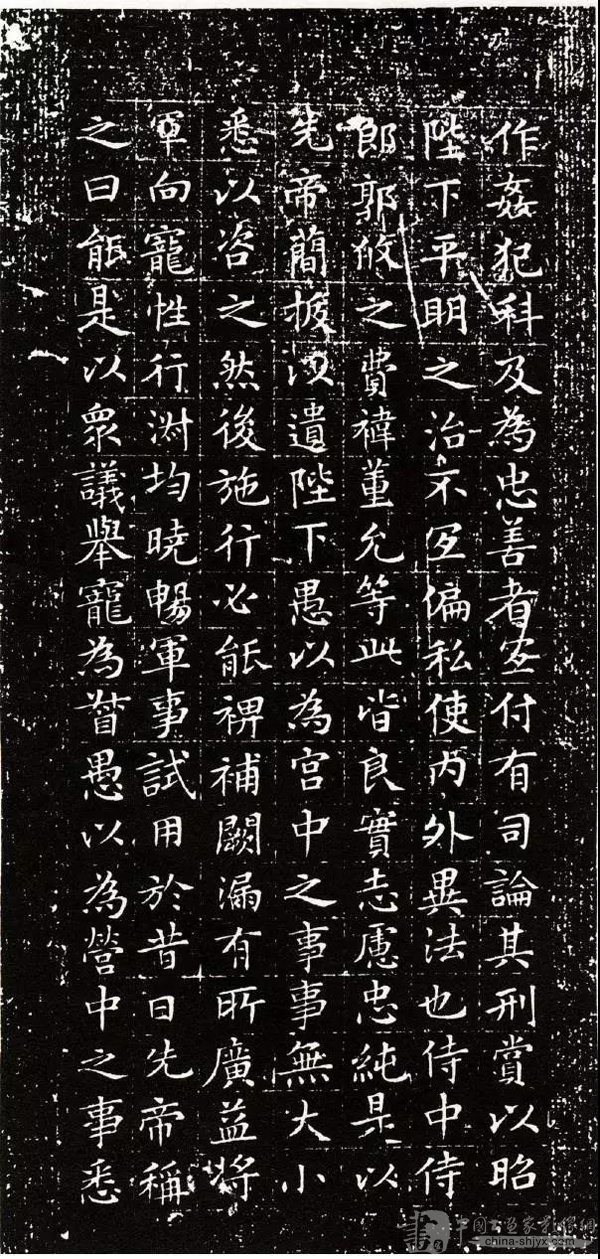 作姦犯科及為忠善者宜付有司論其刑賞以昭
陛下平明之治不宜偏私使內外異法也侍中侍
郎郭攸之費禕董允等此皆良實志慮忠純是以
先帝簡拔以遺陛下愚以為宮中之事事無大小
悉以咨之然後施行必能裨補闕漏有所廣益將
軍向寵性行淑均曉暢軍事試用於昔日先帝稱
之曰能是以衆議舉寵為督愚以為營中之事悉
china-shjyx.com